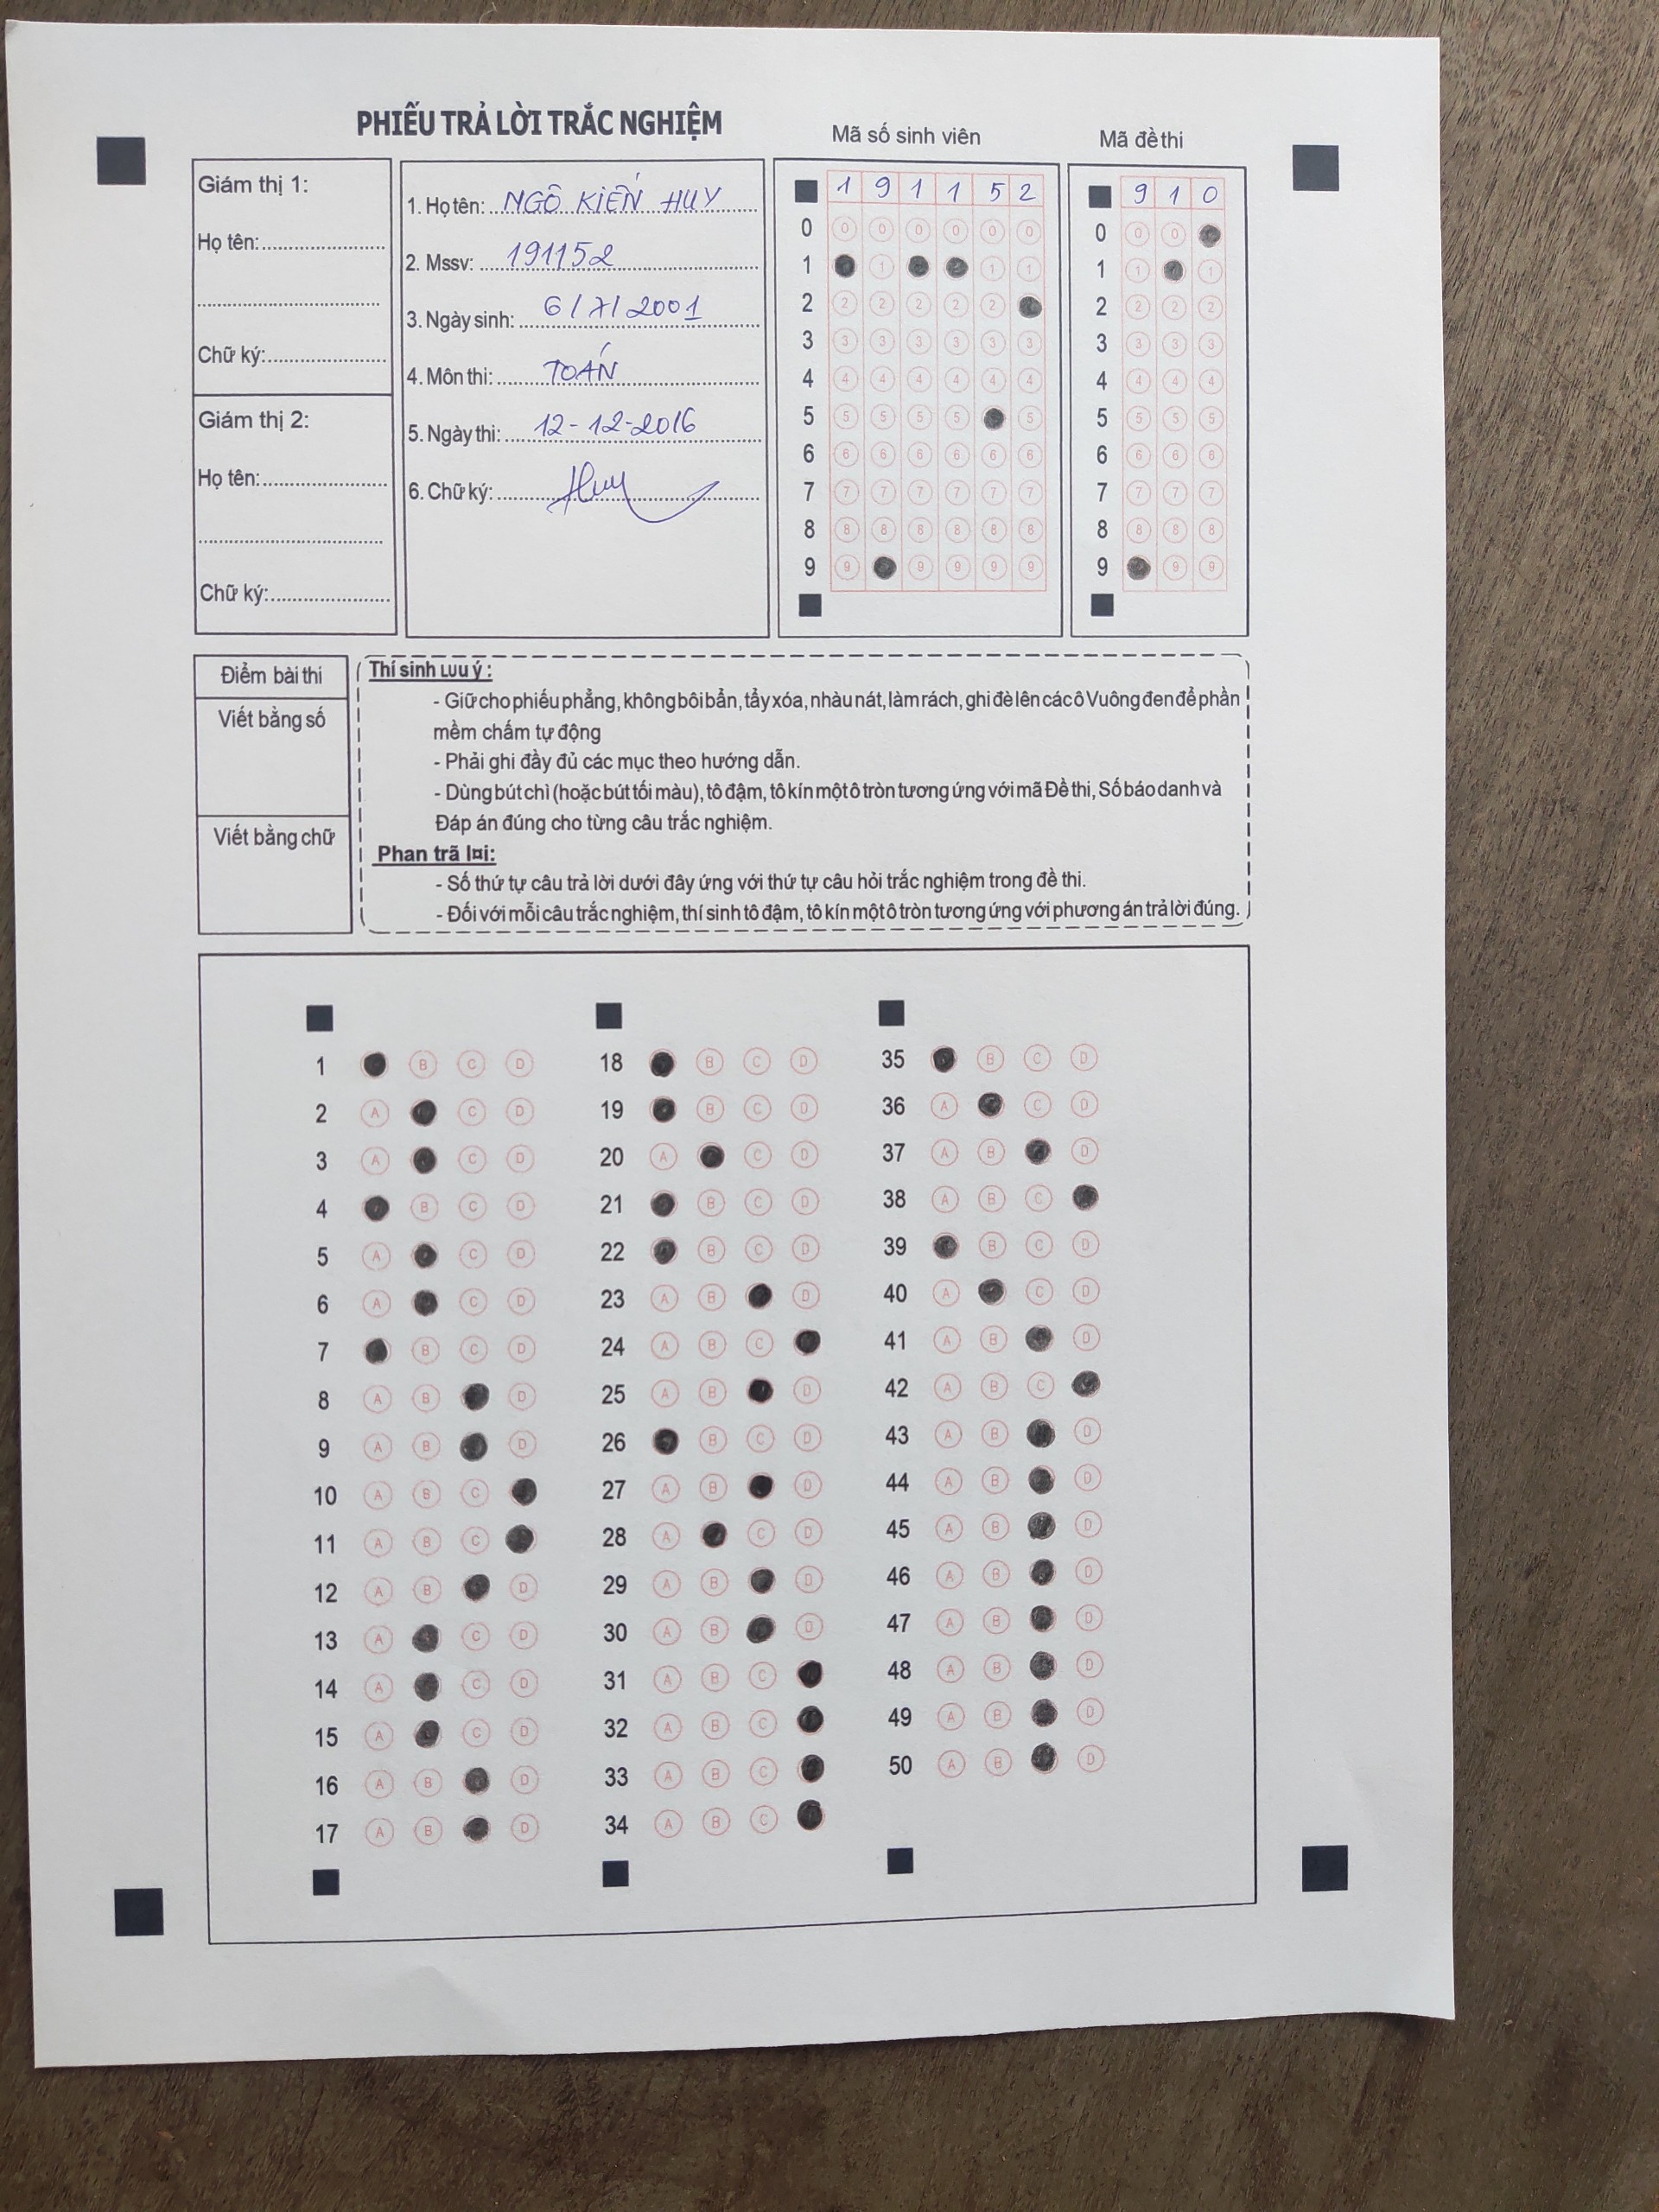 PHIẾU TRẢ LỜI TRẮC NGHIỆM
Giám thị 1:
Họ tên:
Chữ ký:
Giám thị 2:
Họ tên:
Chữ ký:
1. Họ tên: NGÔ KIẾN HUY
2. Mssv: 191152
3. Ngày sinh: 6/7/2001
4. Môn thi: TOÁN
5. Ngày thi: 12-12-2016
6. Chữ ký: Huy
Mã số sinh viên
1 9 1 1 5 2
0 0 0 0 0 0 0
1 1 1 1
2 2 2 2 2 2
3 3 3 3 3 3 3
4 4 4 4 4 4 4
5 5 5 5 5 5
6 6 6 6 6 6 6
7 7 7 7 7 7 7
8 8 8 8 8 8 8
9 9 9 9 9 9
Mã đề thi
9 1 0
0 0 0
1 1 1
2 2 2 2
3 3 3 3
4 4 4 4
5 5 5 5
6 6 6 6
7 7 7 7
8 8 8 8
9 9 9
Điểm bài thi
Viết bằng số
Viết bằng chữ
Thí sinh Lưu ý :
- Giữ cho phiếu phẳng, không bôi bẩn, tẩy xóa, nhàu nát, làm rách, ghi đè lên các ô Vuông đen để phần
mềm chấm tự động
- Phải ghi đầy đủ các mục theo hướng dẫn.
- Dùng bút chì (hoặc bút tối màu), tô đậm, tô kín một ô tròn tương ứng với mã Đề thi, Số báo danh và
Đáp án đúng cho từng câu trắc nghiệm.
Phan trã l¤i:
- Số thứ tự câu trả lời dưới đây ứng với thứ tự câu hỏi trắc nghiệm trong đề thi.
- Đối với mỗi câu trắc nghiệm, thí sinh tô đậm, tô kín một ô tròn tương ứng với phương án trả lời đúng.
1 B C D
2 A C D
3 A C D
4 B C D
5 A C D
6 A C D
7 B C D
8 A B D
9 A B D
10 A B C
11 A B C
12 A B D
13 A C D
14 A C D
15 A C D
16 A B D
17 A B D
18 B C D
19 B C D
20 A C D
21 B C D
22 B C D
23 A B D
24 A B C
25 A B D
26 B C D
27 A B D
28 A C D
29 A B D
30 A B D
31 A B C
32 A B C
33 A B C
34 A B C
35 B C D
36 A C D
37 A B D
38 A B C
39 B C D
40 A C D
41 A B D
42 A B C
43 A B D
44 A B D
45 A B D
46 A B D
47 A B D
48 A B D
49 A B D
50 A B D